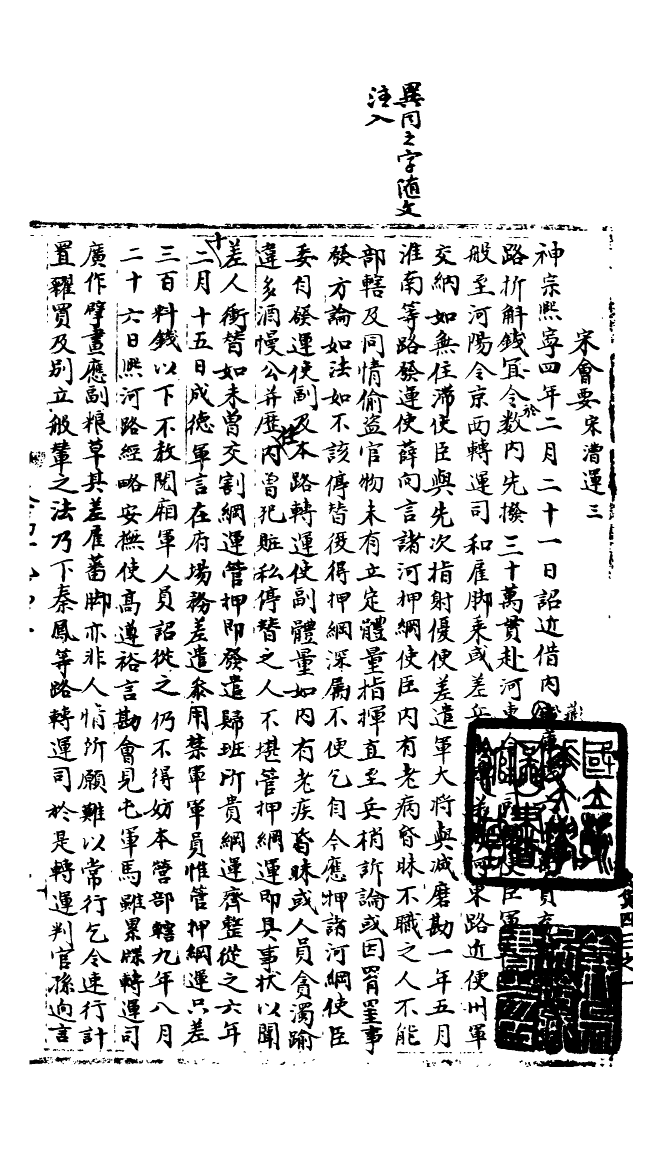 異同之字隨文
注入
宋會要 宋漕運三
神宗熙寧四年二月二十一日詔近借內
路折斛錢冝令於數內先撥三十萬貫赴河東
般至河陽令京西轉運司和雇脚乘或差兵 河東路近便州軍
交納如無住滯使臣與先次指射優便差遣軍大將與減磨勘一年五月
淮南等路發運使薛向言諸河押綱使臣內有老病昏昧不職之人不能
部轄及同情偷盜官物未有立定體量指揮直至兵梢訴論或因罥罣事
發方論如法如不該停替後得押綱深屬不便乞自今應押諸河綱使臣
委自發運使副及本路轉運使副體量如內有老疾昏昧或人員貪濁踰
違多酒慢公并歷任內曾犯賍私停替之人不堪管押綱運即具事狀以聞
差人衝替如未曾交割綱運管押即發遣歸班所貴綱運齊整從之六年
十二月十五日成德軍言在府場務差遣叅用禁軍軍員惟管押綱運只差
三百料錢以下不教閱廂軍人員詔從之仍不得妨本營部轄九年八月
二十六日熙河路經略安撫使高遵裕言勘會見屯軍馬雖累牒轉運司
廣作擘畫應副粮草其差雇蕃脚亦非人情所願難以常行乞令速行計
置糴買及別立般輦之法乃下秦鳳等路轉運司於是轉運判官孫迥言